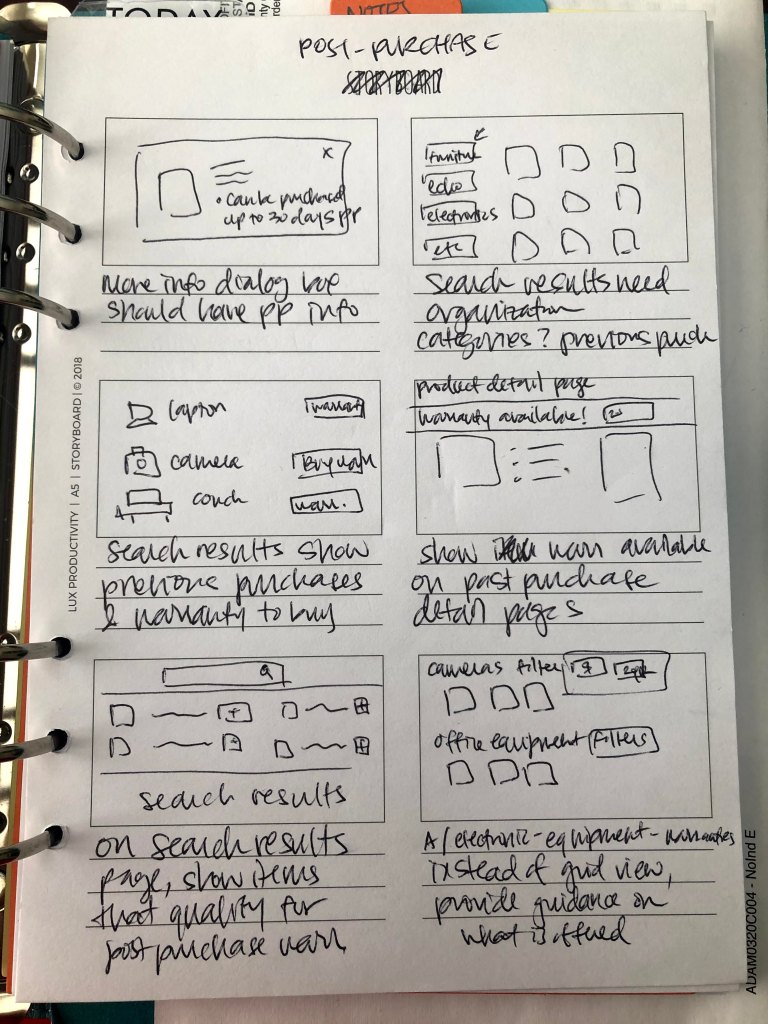 TODAY
NOTES
POST-PURCHASE
STORYBOARD
x
• Can be purchased
up to 30 days pp
More info dialog box
should have pp info
furniture
echo
electronics
etc
search results need
organization
categories? previous purch
laptop
warranty
camera
Buy warr
couch
warr.
search results show
previous purchases
& warranty to buy
product detail page
warranty available!
show warr available
on past purchase
detail pages
search results
on search results
page, show items
that qualify for
post purchase warr
cameras filter
office equipment filters
A/electronic-equipment-warranties
instead of grid view,
provide guidance on
what is offered
LUX PRODUCTIVITY | A5 | STORYBOARD | © 2018
ADAM0320C004 - NoInd E